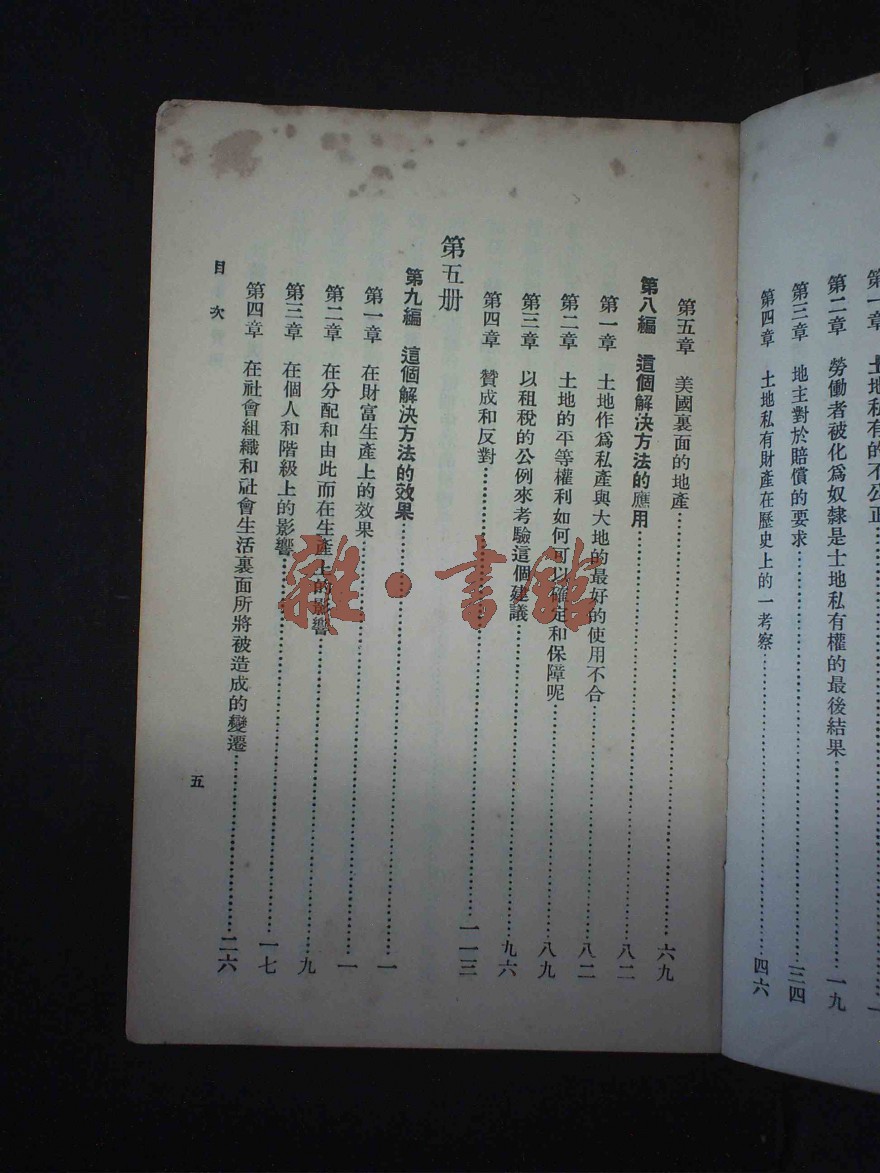 第一章　土地私有的不公正……一
第二章　勞働者被化爲奴隸是土地私有權的最後結果……一九
第三章　地主對於賠償的要求……三四
第四章　土地私有財產在歷史上的一考察……四六
第五章　美國裏面的地產……六九
第八編　這個解決方法的應用……八二
第一章　土地作爲私產與大地的最好的使用不合……八二
第二章　土地的平等權利如何可以確定和保障呢……八九
第三章　以租稅的公例來考驗這個建議……九六
第四章　贊成和反對……一一三
第五册
第九編　這個解決方法的效果……一
第一章　在財富生產上的效果……一
第二章　在分配和由此而在生產上的影響……九
第三章　在個人和階級上的影響……一七
第四章　在社會組織和社會生活裏面所將被造成的變遷……二六
目次
五
雜·書館